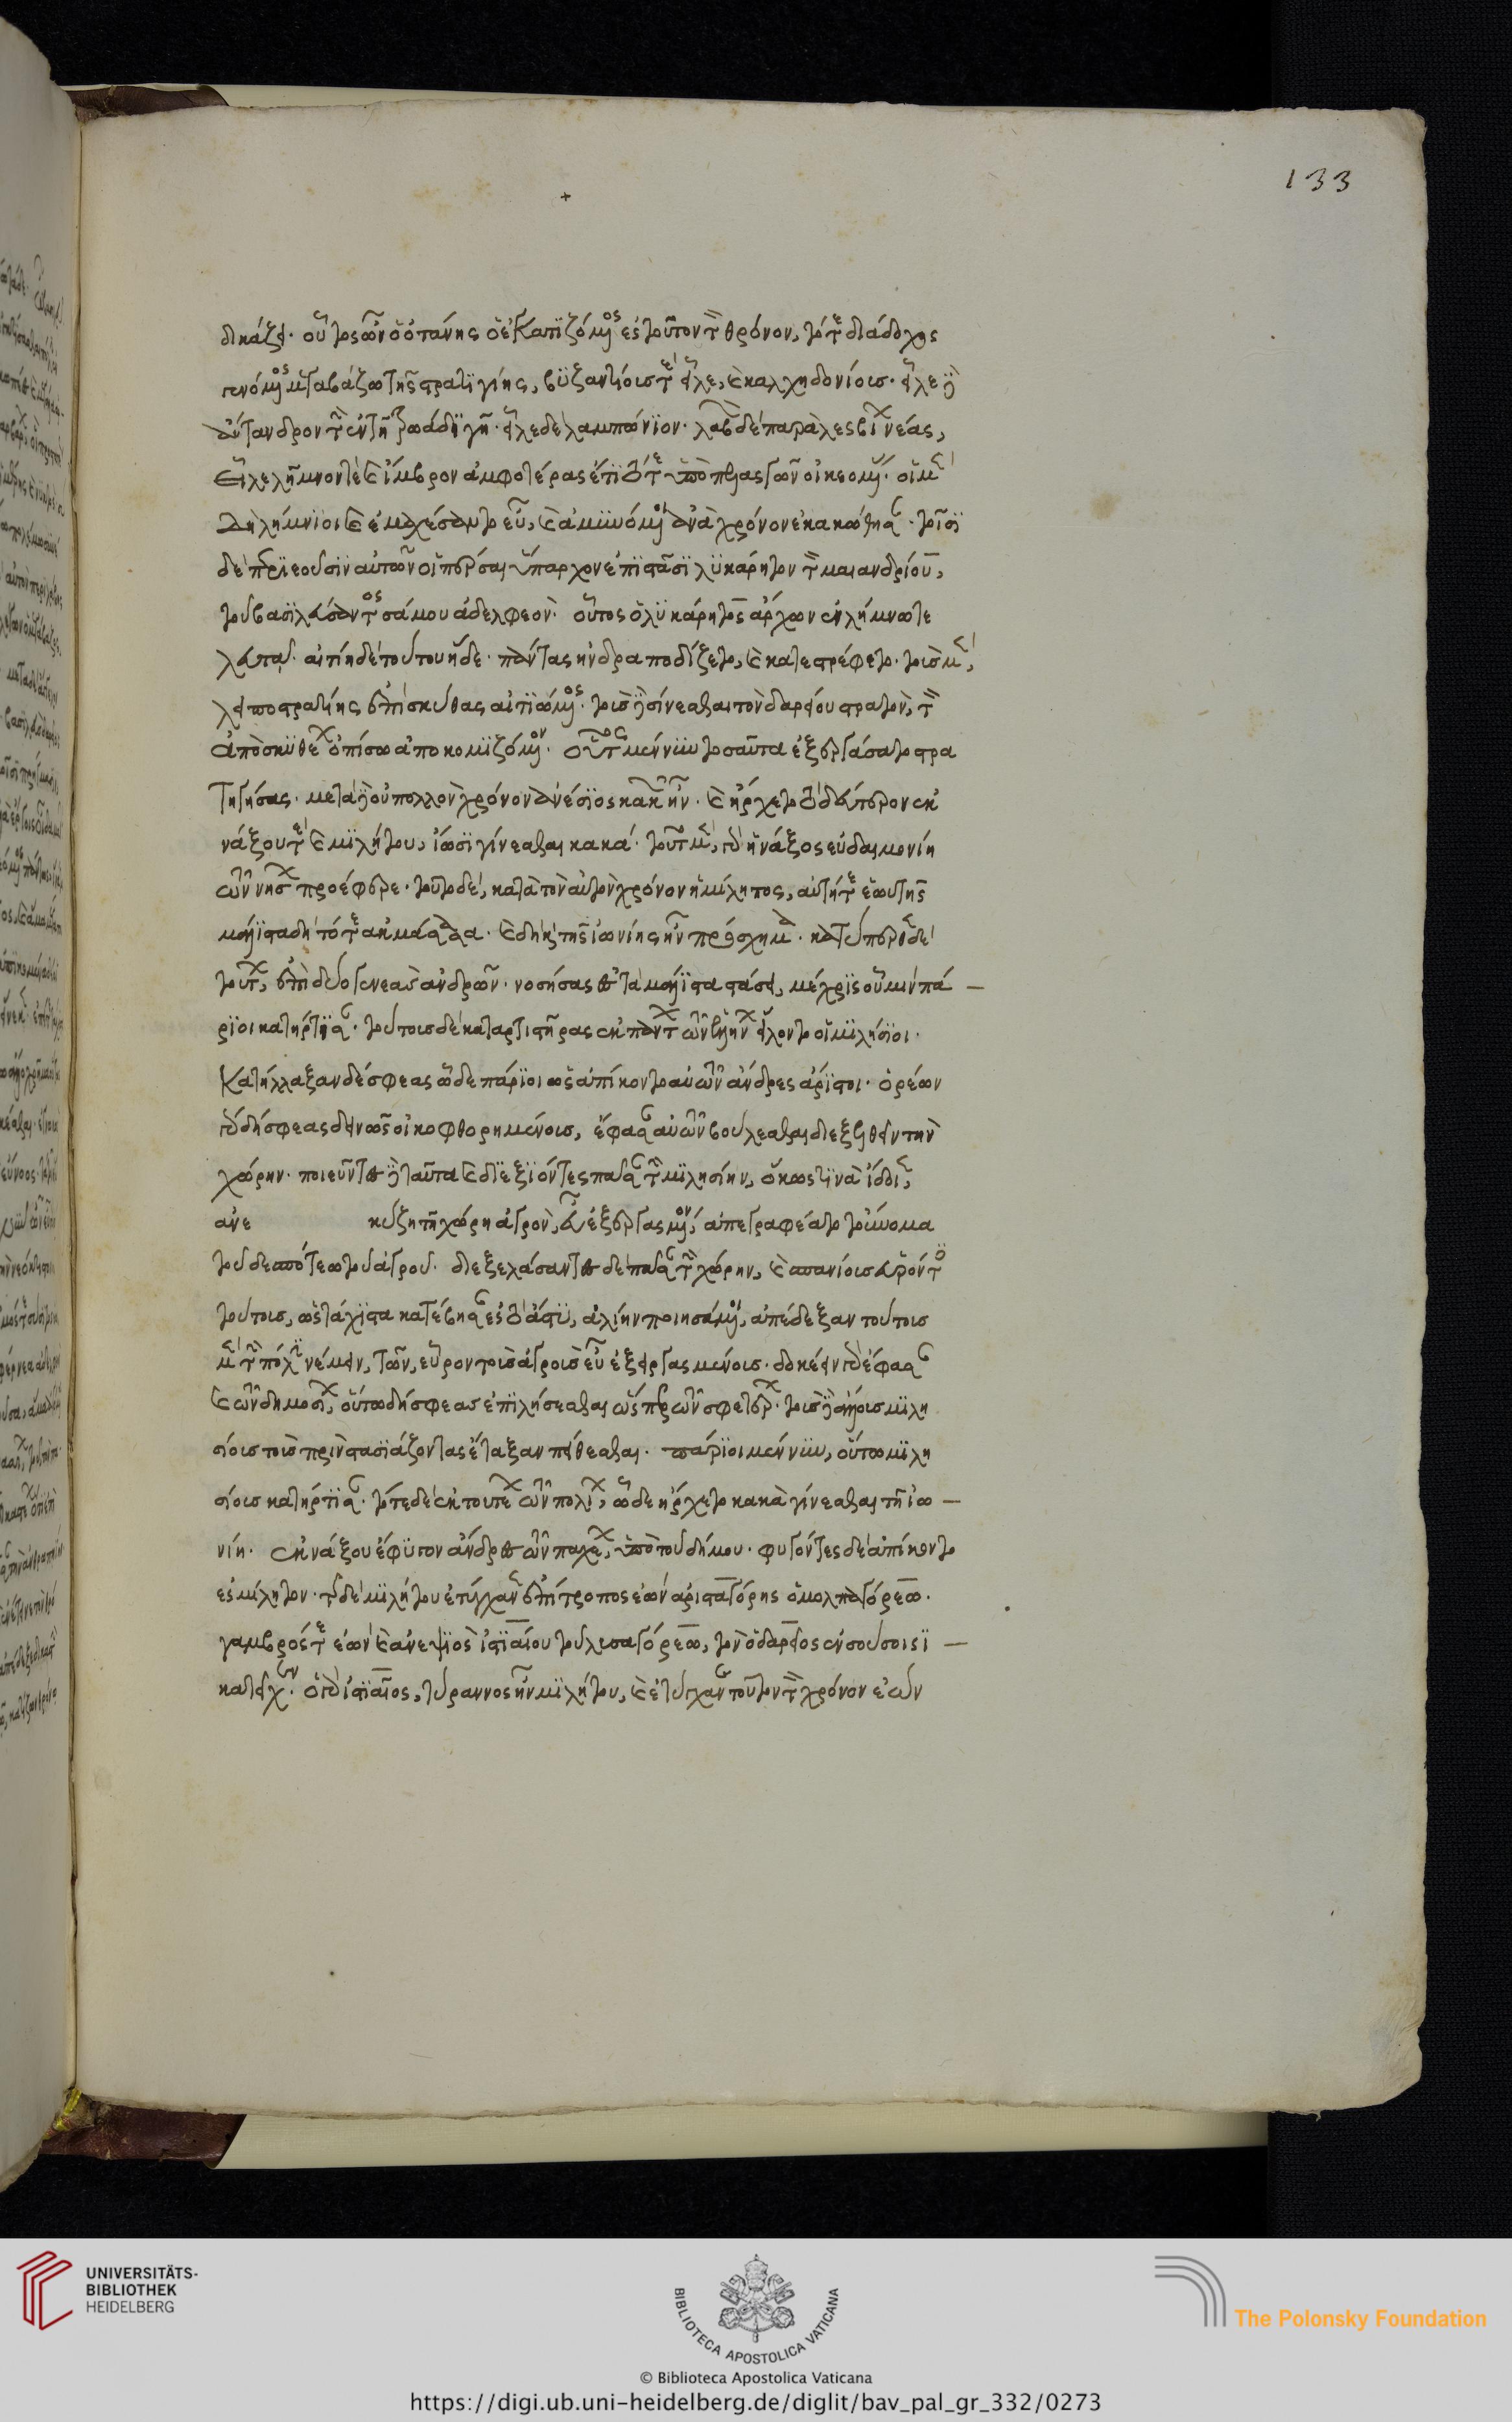 133
δικάζει. οὗτος ὦν ὁ ὀτάνης ὁ ἐγκατιζόμενος ἐς τοῦτον τὸν θρόνον, τότε διάδοχος
γενόμενος μεγαβάζω τῆς στρατιγίης, βυζαντίοις τε εἷλε, καὶ καλχηδονίοις. εἷλε δὲ
ἄντανδρον τὴν ἐν τῆ τρωάδι γῆ. εἷλε δὲ λαμπώνιον. λαβὼν δὲ παρὰ λεσβίων νέας,
εἷλε λῆμνον τὲ καὶ ἴμβρον ἀμφοτέρας ἔτι τότε ὑπὸ πελασγῶν οἰκεομένας. οἱ μὲν
δὴ λήμνιοι καὶ ἐμαχέσαντο εὖ, καὶ ἀμυνόμενοι ἀνὰ χρόνον ἐκακώθησαν. τοῖσι
δὲ περιεοῦσιν αὐτῶν οἱ πέρσαι ὕπαρχον ἐπιστᾶσι λυκάρητον τὸν μαιανδρίου,
τοῦ βασιλεύσαντος σάμου ἀδελφεόν. οὗτος ὁ λυκάρητος ἄρχων ἐν λήμνω τε
λευτᾶ. αἰτίη δὲ τούτου ἥδε. πάντας ἠνδραποδίζετο, καὶ κατεστρέφετο. τοὺς μὲν,
λειποστρατίης ἐπὶ σκύθας αἰτιώμενος. τοὺς δὲ σίνεσθαι τὸν δαρείου στρατὸν, τὸν
ἀπὸ σκυθέων ὀπίσω ἀποκομιζόμενον. οὗτος μέν νυν τοσαῦτα ἐξεργάσατο στρα
τηγήσας. μετὰ δὲ οὐ πολλὸν χρόνον ἄνεσις κακῶν ἦν. καὶ ἤρχετο τὸ δεύτερον ἐκ
νάξου τὲ καὶ μιλήτου, ἴωσι γίνεσθαι κακά. τοῦτο μὲν, γὰρ ἡ νάξος εὐδαιμονίη
τῶν νήσων προέφερε. τοῦτο δὲ, κατὰ τὸν αὐτὸν χρόνον ἡ μίλητος, αὐτή τε ἑωυτῆς
μάλιστα δὴ τότε ἀκμάσασα. καὶ δὴ καὶ τῆς ἰωνίης ἦν πρόσχημα. κατύπερθε δὲ
τούτων, ἐπὶ δύο γενεὰς ἀνδρῶν. νοσήσασα ἐς τὰ μάλιστα στάσει, μέχρις οὗ μιν πά –
ριοι κατήρτισαν. τούτους δὲ καταρτιστῆρας ἐκ πάντων ἑλλήνων εἵλοντο οἱ μιλήσιοι.
Κατήλλαξαν δέ σφεας ὧδε πάριοι ὡς ἀπίκοντο αὐτῶν ἄνδρες ἄριστοι. ὁρέων
γὰρ δή σφεας δεινῶς οἰκοφθορημένους, ἔφασαν αὐτῶν βούλεσθαι διεξελθεῖν τὴν
χώρην. ποιεῦντες δὲ ταῦτα καὶ διεξιόντες πᾶσαν τὴν μιλησίην, ὅκως τινὰ ἴδοιεν,
ἀνε κυζη τῆ χώρη ἀγρὸν, εὖ ἐξεργασμένον, ἀπεγραφέατο τοὔνομα
τοῦ δεσπότεω τοῦ ἀγροῦ. διεξελάσαντες δὲ πᾶσαν τὴν χώρην, καὶ σπανίους εὑρόντες
τούτους, ὡς τάχιστα κατέβησαν ἐς τὸ ἄστυ, ἁλίην ποιησάμενοι, ἀπέδεξαν τούτους
μὲν τὴν πόλιν νέμειν, τῶν, εὗρον τοὺς ἀγροὺς εὖ ἐξεργασμένους. δοκέειν γὰρ ἔφασαν
καὶ τῶν δημοσίων, οὕτω δή σφεας ἐπιλήσεσθαι ὥσπερ τῶν σφετέρων. τοὺς δὲ ἄλλους μιλη
σίους τοὺς πρὶν στασιάζοντας ἔταξαν πείθεσθαι. πάριοι μέν νυν, οὕτω μιλη
σίους κατήρτισαν. τότε δὲ ἐκ τουτέων τῶν πολίων, ὧδε ἤρχετο κακὰ γίνεσθαι τῆ ἰω –
νίη. ἐκ νάξου ἔφυγον ἄνδρες τῶν παχέων, ὑπὸ τοῦ δήμου. φυγόντες δὲ ἀπίκοντο
ἐς μίλητον. τῆς δὲ μιλήτου ἐτύγχανεν ἐπίτροπος ἐὼν ἀρισταγόρης ὁ μολπαγόρεω.
γαμβρός τε ἐὼν καὶ ἀνεψιὸς ἱστιαίου τοῦ λυσαγόρεω, τὸν ὁ δαρεῖος ἐν σούσοισι –
κατεῖχεν. ὁ γὰρ ἱστιαῖος, τύραννος ἦν μιλήτου, καὶ ἐτύγχανεν τοῦτον τὸν χρόνον ἐὼν
UNIVERSITÄTS-
BIBLIOTHEK
HEIDELBERG
BIBLIOTECA APOSTOLICA VATICANA
The Polonsky Foundation
© Biblioteca Apostolica Vaticana
https://digi.ub.uni-heidelberg.de/diglit/bav_pal_gr_332/0273